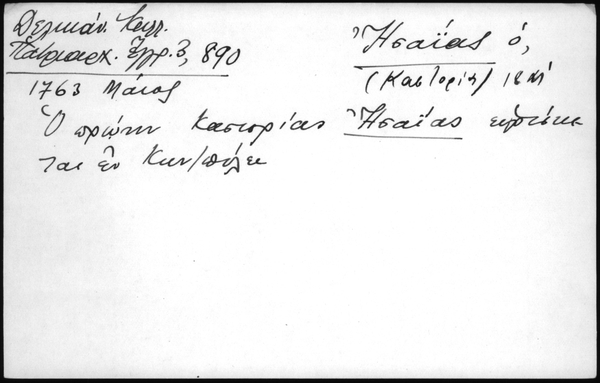 Δελικάν. Καλλ.
Πατριαρχ. Ἔγγρ. 3, 890
Ἠσαΐας ὁ,
(Καστορίας) 18
1763 Μάιος
Ὁ πρώην Καστορίας Ἠσαΐας εὑρίσκε
ται ἐν Κων/πόλει